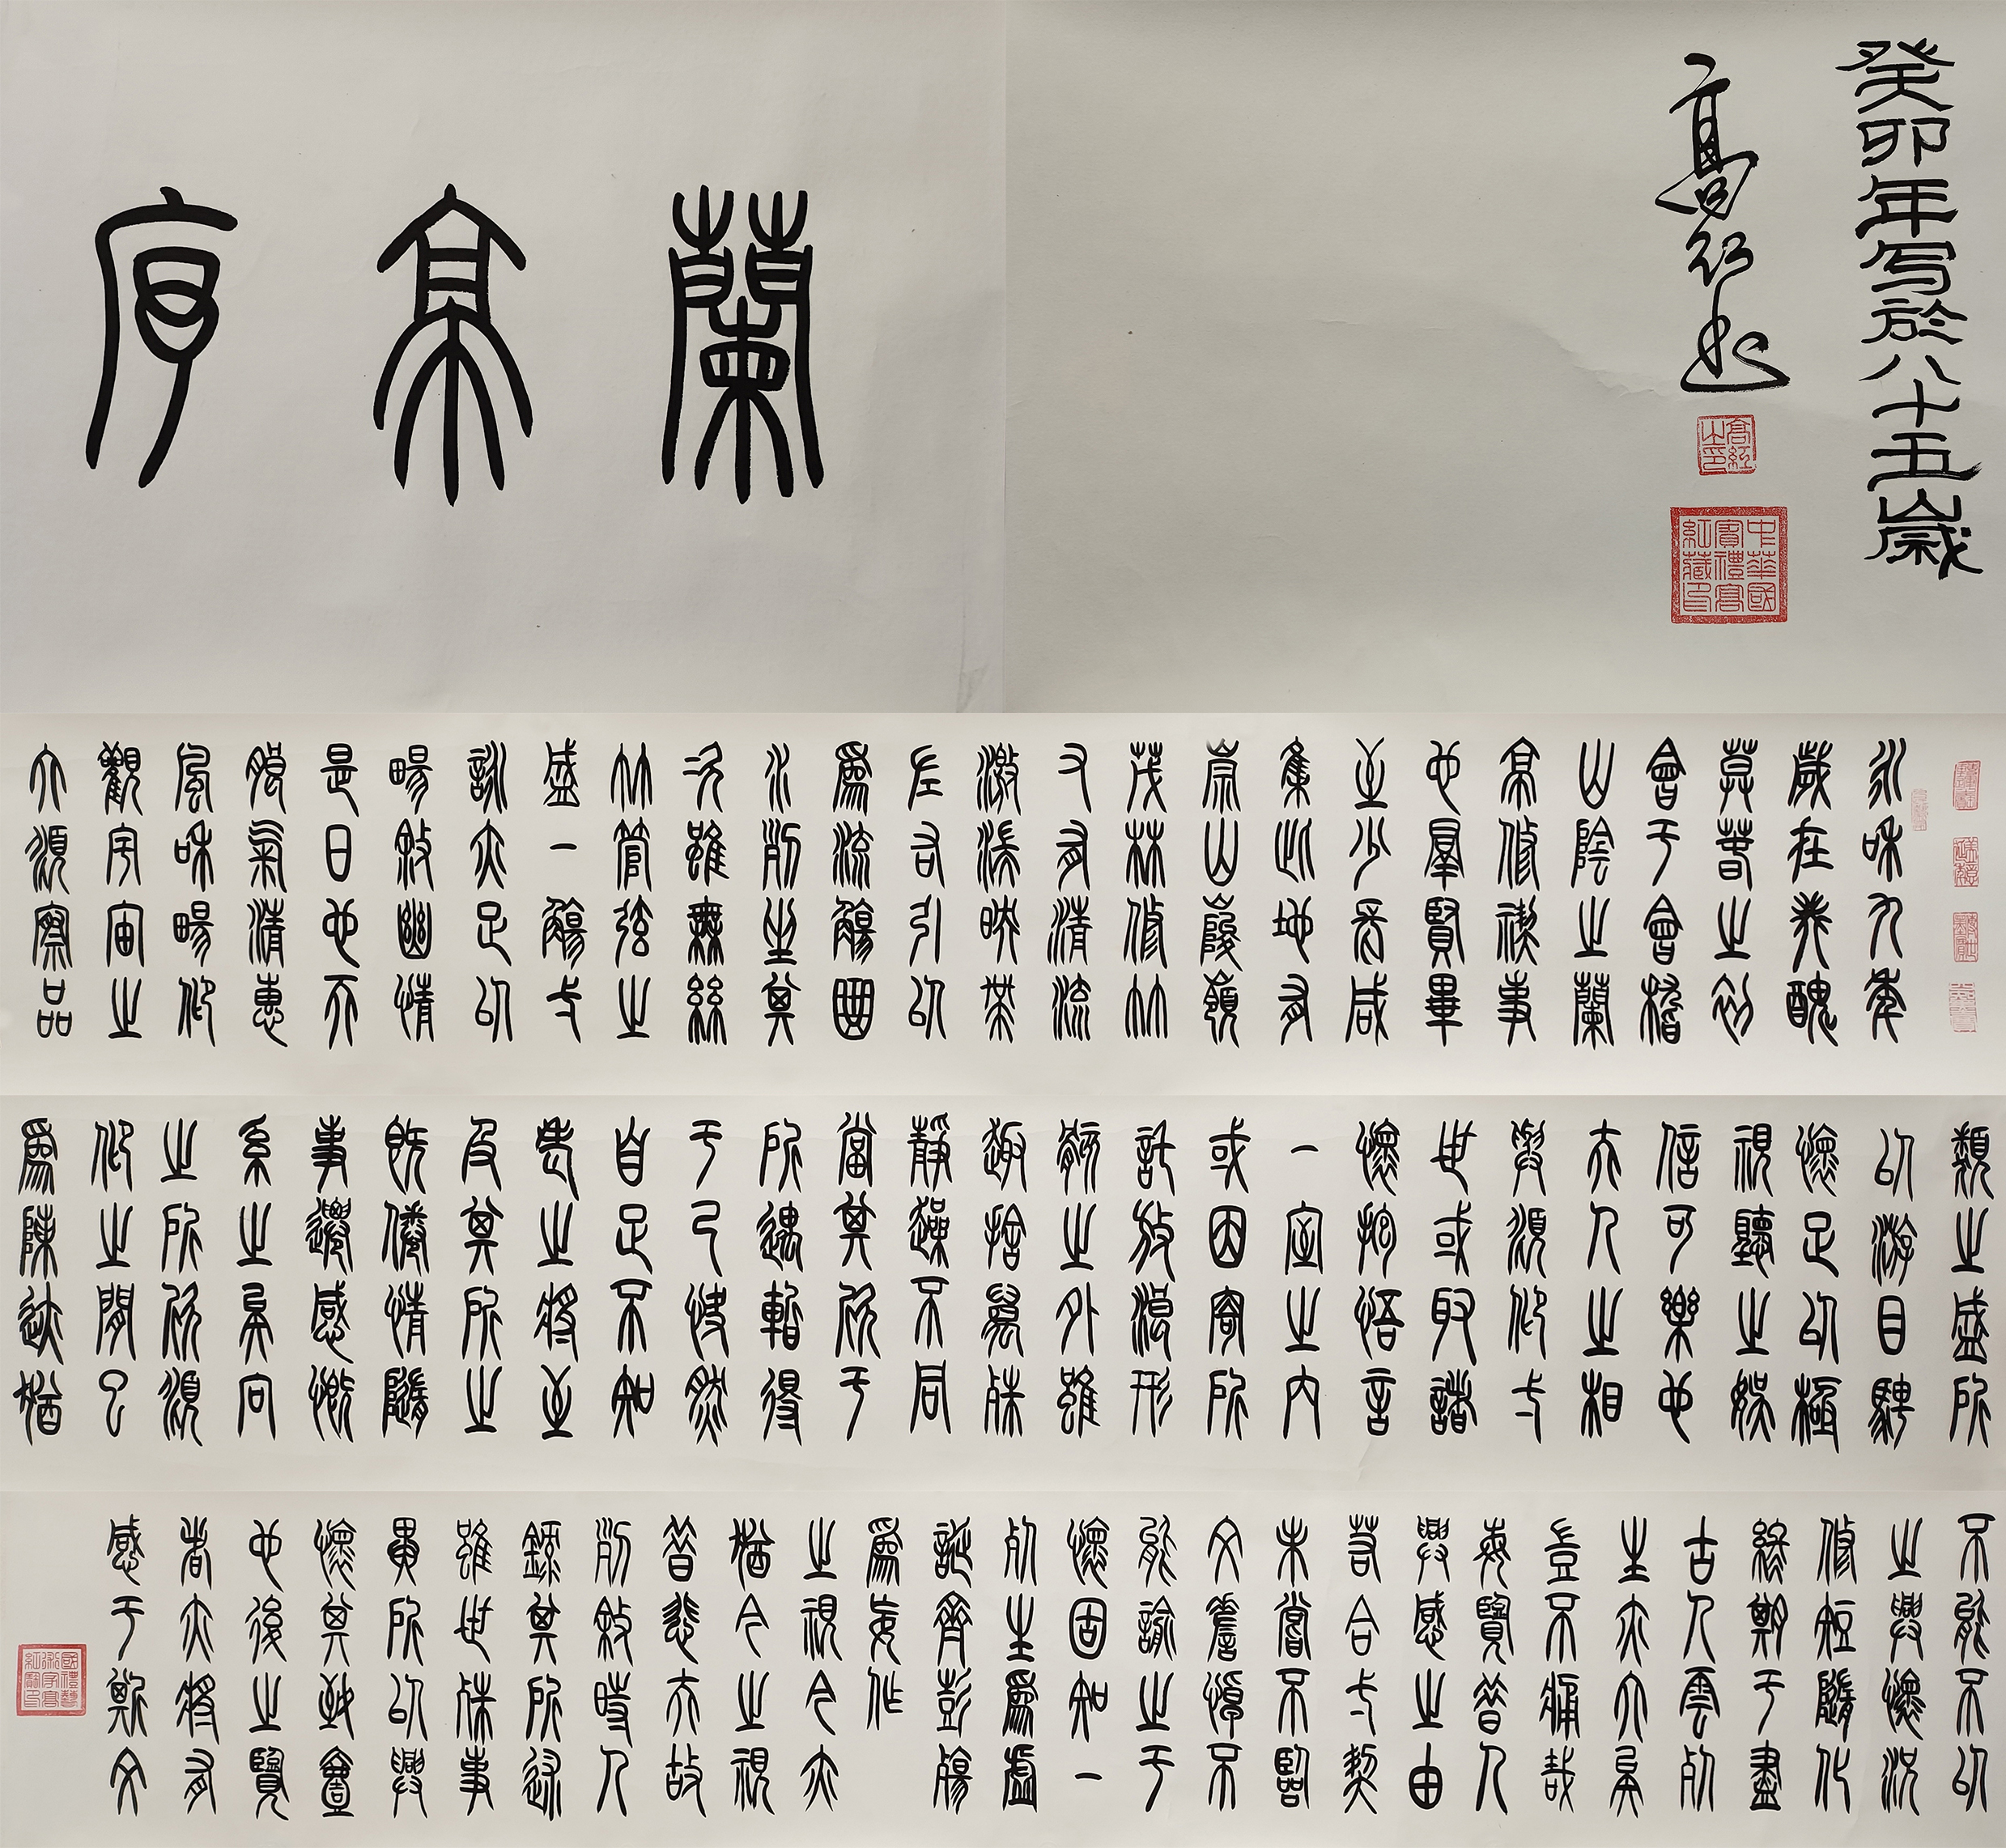 蘭亭序
癸卯年写於八十五歲
中華國賓禮高紅藏印
永和九年
歲在癸醜
莫春之初
會于會稽
山陰之蘭
亭修禊事
也羣賢畢
至少長咸
集此地有
崇山峻嶺
茂林修竹
又有清流
激湍映帶
左右引以
爲流觴曲
水列坐其
次雖無絲
竹管弦之
盛一觴一
詠亦足以
暢敘幽情
是日也天
朗氣清惠
風和暢仰
觀宇宙之
大俯察品
類之盛所
以游目騁
懷足以極
視聽之娛
信可樂也
夫人之相
與俯仰一
世或取諸
懷抱悟言
一室之内
或因寄所
託放浪形
骸之外雖
趣捨萬殊
靜躁不同
當其欣于
所遇暫得
于己快然
自足不知
老之將至
及其所之
既倦情隨
事遷感慨
系之矣向
之所欣俯
仰之間已
爲陳迹猶
不能不以
之興懷況
修短隨化
終期于盡
古人雲死
生亦大矣
豈不痛哉
每覽昔人
興感之由
若合一契
未嘗不臨
文嗟悼不
能諭之于
懷固知一
死生爲虛
誕齊彭殤
爲妄作
之視今亦
猶今之視
昔悲夫故
列敘時人
錄其所述
雖世殊事
異所以興
懷其致壹
也後之覽
者亦將有
感于斯文